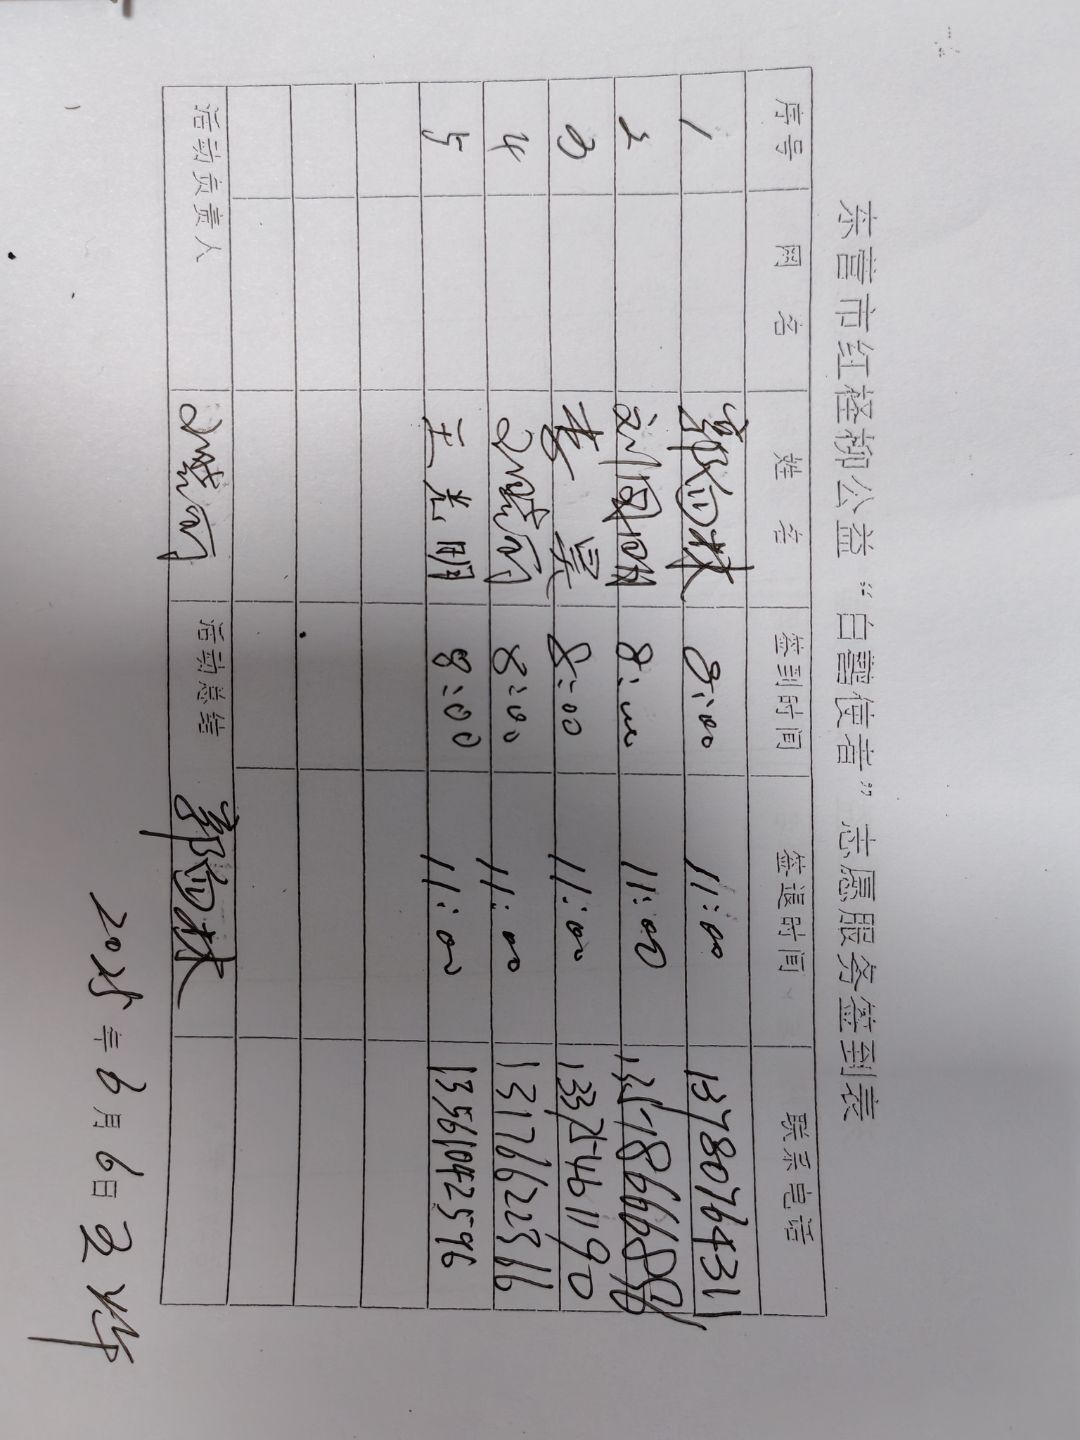 东营市红柽柳公益“白鹭使者”志愿服务签到表
序号 网名 姓名 签到时间 签退时间 联系电话
1 8:00 11:00 13780764311
2 刘国明 8:00 11:00
3 李昊 8:00 11:00 13325461190
4 8:00 11:00 13176622366
5 王光明 8:00 11:00 13561042596
活动负责人 活动总结
2025年6月6日